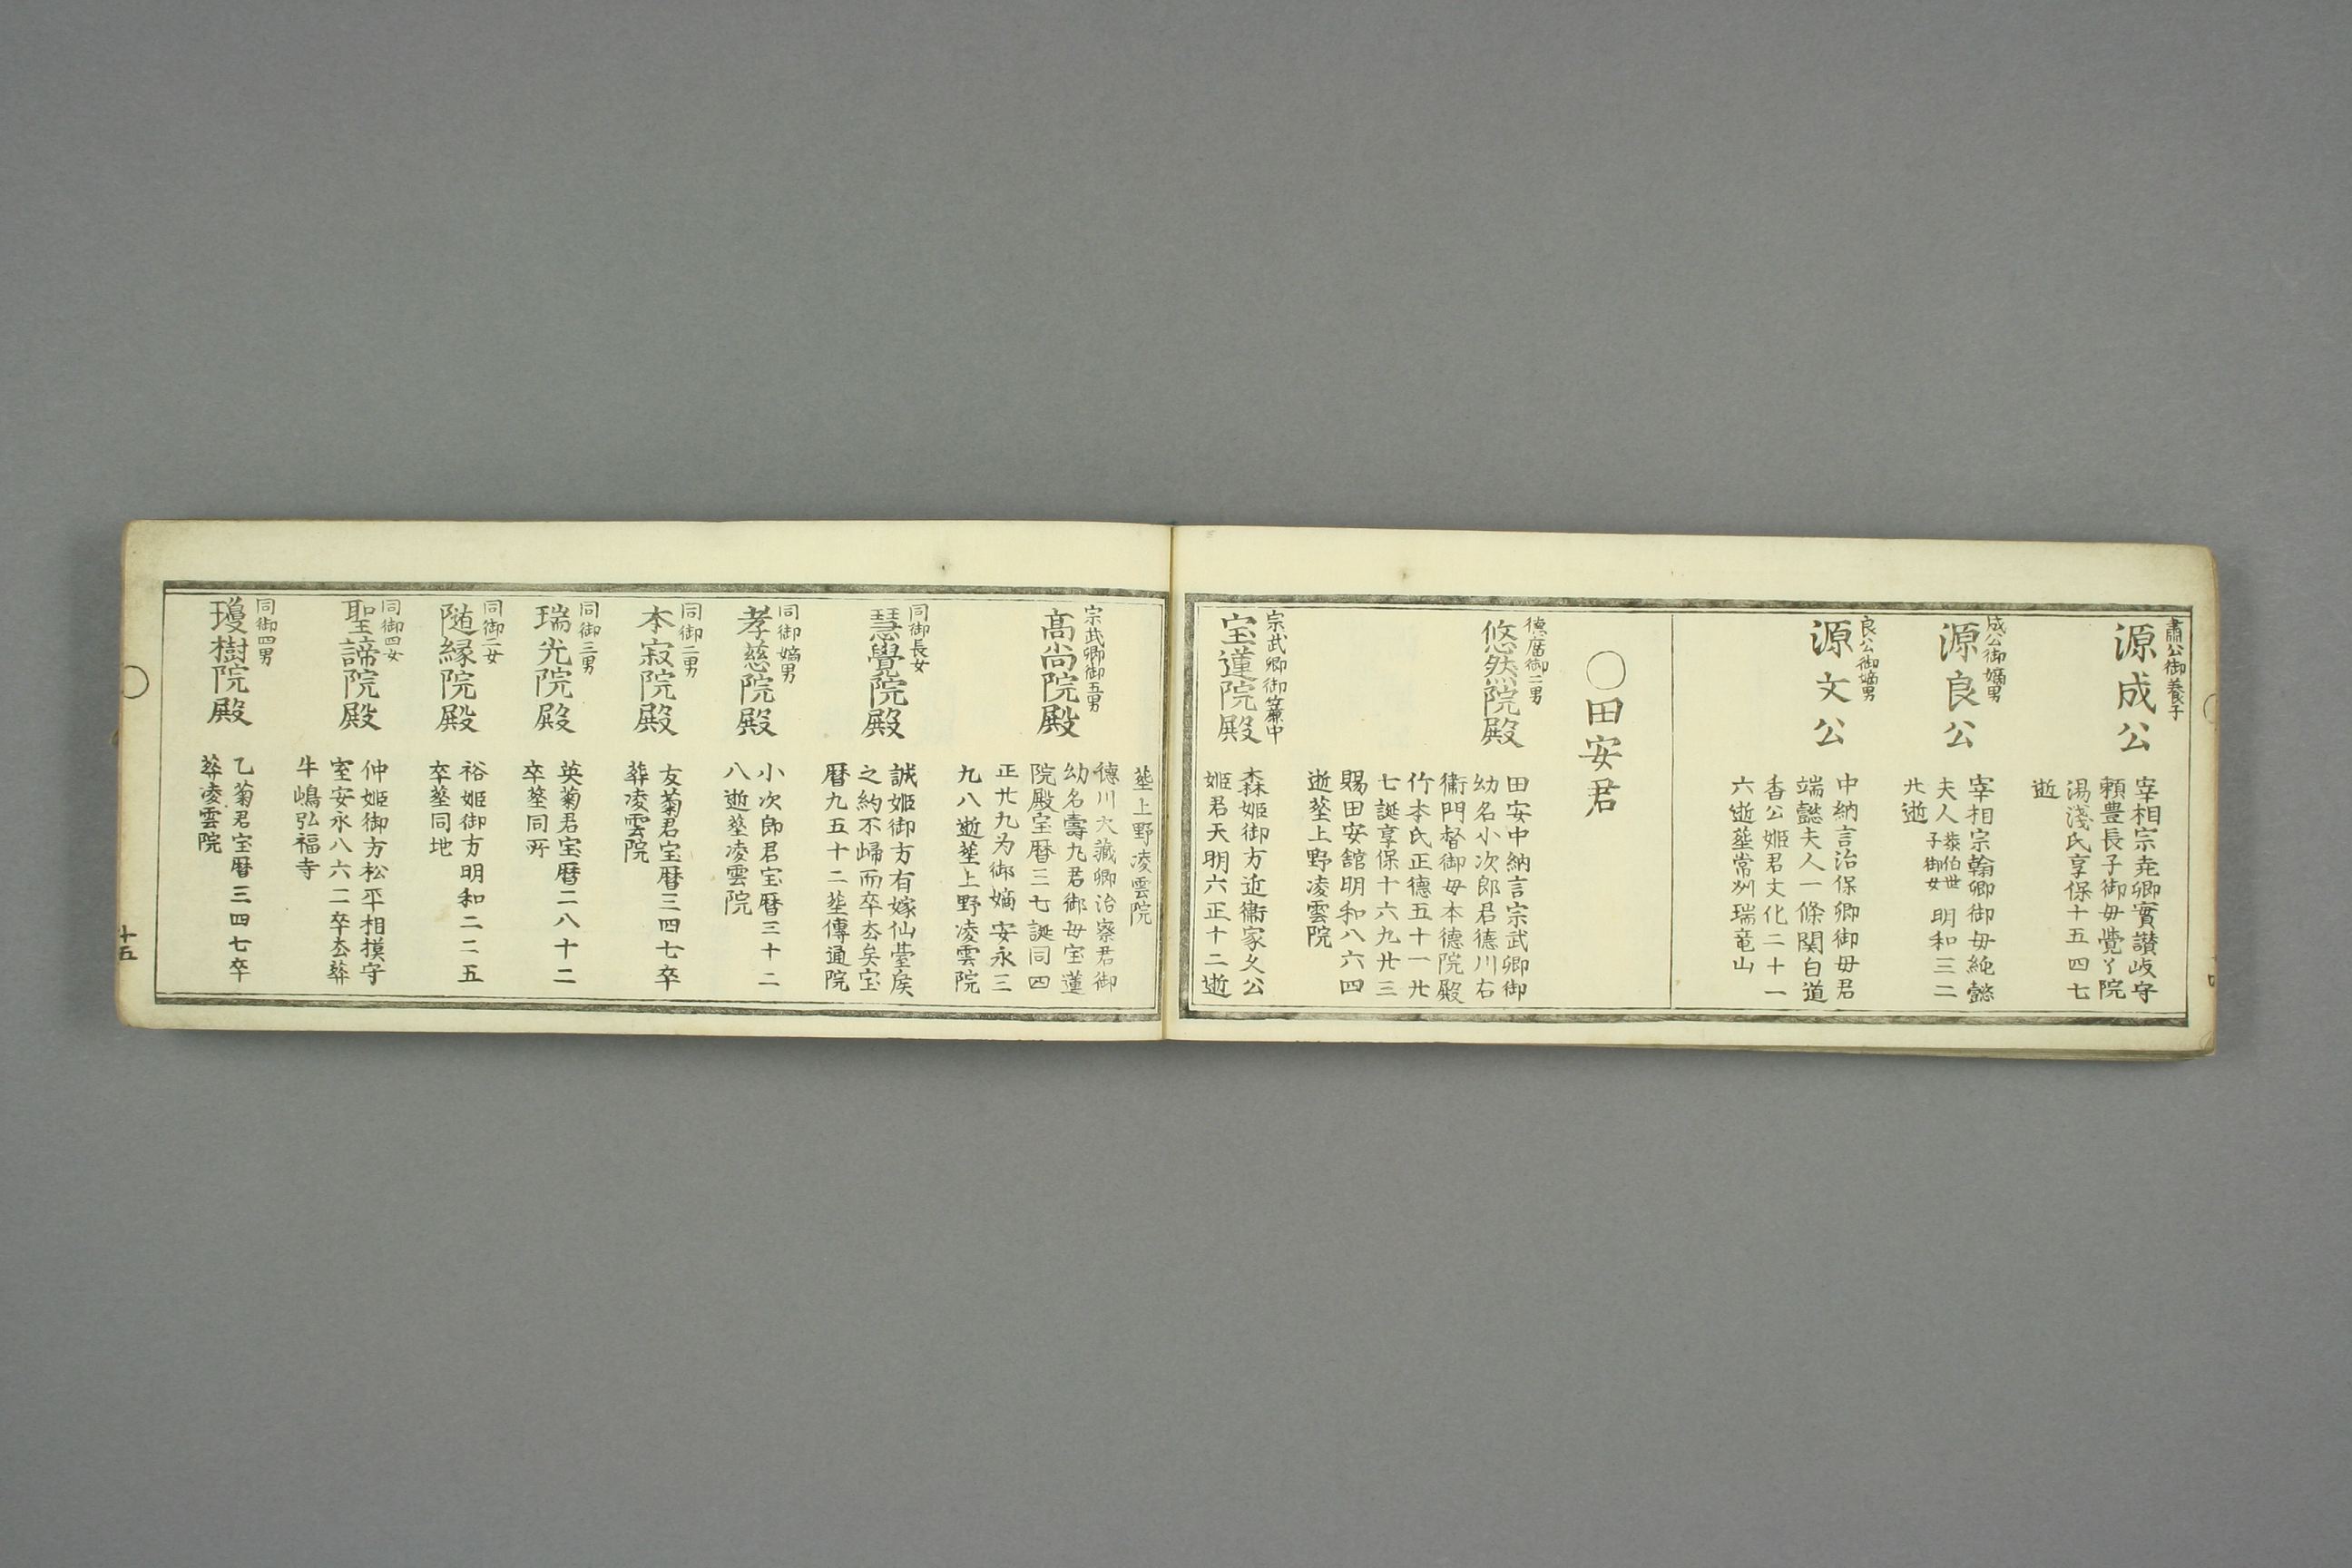 肅公御養子
源成公
宰相宗尭卿實讃岐守
頼豊長子御母覺了院
湯淺氏享保十五四七
逝
成公御嫡男
源良公
宰相宗翰卿御母純懿
夫人
子御女
明和三二
廾逝
良公御嫡男
源文公
中納言治保卿御母君
端懿夫人一條関白道
香公姫君文化二十一
六逝塟常州瑞竜山
○田安君
德廟御二男
悠然院殿
田安中納言宗武卿御
幼名小次郎君德川右
衞門督御母本德院殿
竹本氏正德五十一廾
七誕享保十六九廾三
賜田安舘明和八六四
逝塟上野凌雲院
宗武卿御簾中
宝蓮院殿
森姫御方近衞家久公
姫君天明六正十二逝
塟上野凌雲院
宗武卿御五男
髙尚院殿
德川大藏卿治察君御
幼名壽九君御母宝蓮
院殿宝暦三七誕同四
正廾九为御嫡安永三
九八逝塟上野凌雲院
同御長女
慧覺院殿
誠姫御方有嫁仙䑓矦
之約不歸而卒去矣宝
暦九五十二塟傳通院
同御嫡男
孝慈院殿
小次郎君宝暦三十二
八逝塟凌雲院
同御二男
本寂院殿
友菊君宝暦三四七卒
葬凌雲院
同御三男
瑞光院殿
英菊君宝暦二八十二
卒塟同所
同御二女
随縁院殿
裕姫御方明和二二五
卒塟同地
同御四女
聖諦院殿
仲姫御方松平相摸守
室安永八六二卒去葬
牛嶋弘福寺
同御四男
瓊樹院殿
乙菊君宝暦三四七卒
葬凌雲院
十五